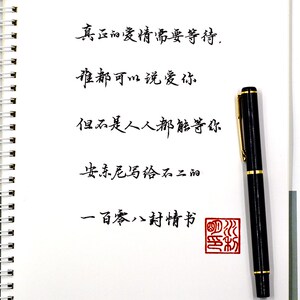 真正的爱情需要等待.
谁都可以说爱你
但不是人人都能等你
安东尼写给不二的
一百零八封情书